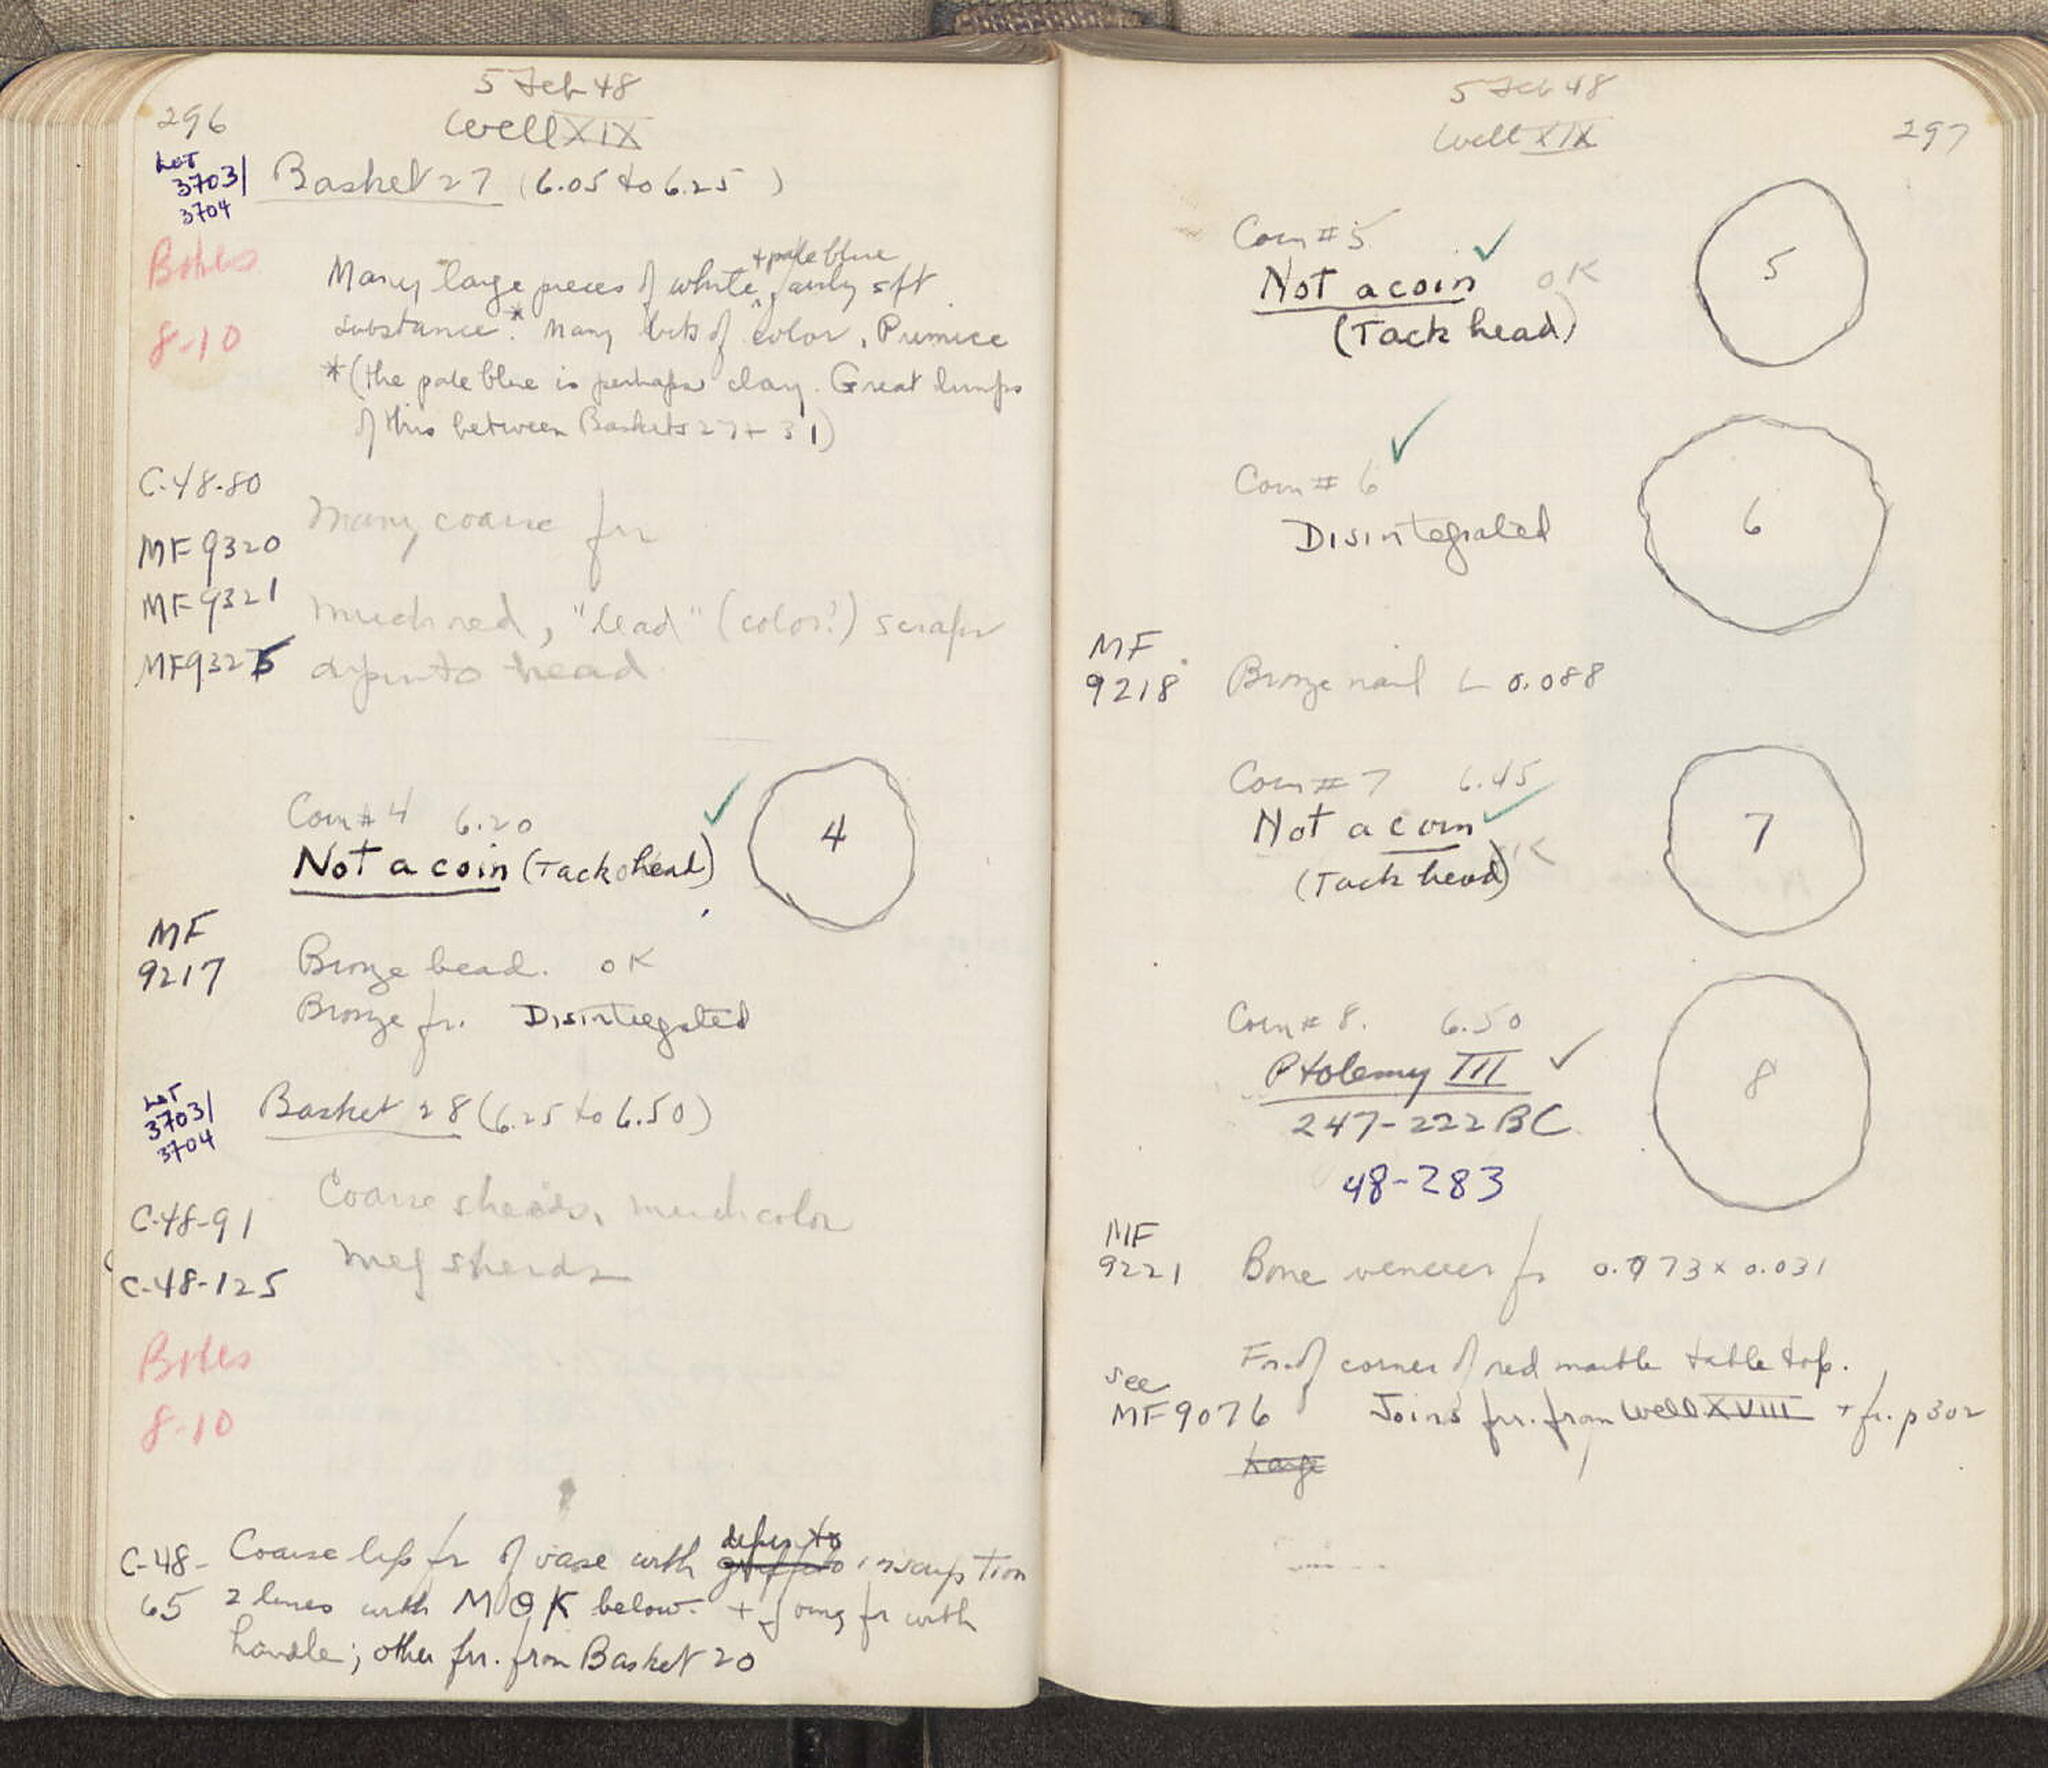 296
5 Feb 48
Well XIX
Lot
3703/
3704
Basket 27 (6.05 to 6.25)
Boxes
8-10
+ pale blue
Many large pieces of white fairly sft
substance.* Many bits of color, Pumice
*(the pale blue is perhaps clay. Great lumps
of this between Baskets 27 + 31)
C-48-80
MF 9320
MF 9321
MF 932
Many coarse frr
Much red, "lead" (color?) scraps
dipinto head
Coin #4 6.20
Not a coin (Tack head)
4
MF
9217
Bronze bead. OK
Bronze fr. Disintegrated
Lot
3703/
3704
Basket 28 (6.25 to 6.50)
C-48-91
C-48-125
Coarse sherds, much color
Meg sherds
Boxes
8-10
C-48-
65
dipinto
Coarse lip fr of vase with graffito inscription
2 lines with MΘK below. + joing fr with
handle; other frr. from Basket 20
5 Feb 48
Well XIX
297
Coin #5
Not a coin OK
(Tack head)
5
Coin # 6
Disintegrated
6
MF
9218
Bronze nail L 0.088
Coin # 7 6.45
Not a coin
(Tack head) OK
7
Coin # 8. 6.50
Ptolemy III
247-222 BC
48-283
8
MF
9221
Bone veneer fr 0.073 x 0.031
Fr. of corner of red marble table top.
see
MF 9076
Joins frr. from Well XVIII + fr. p 302
Large